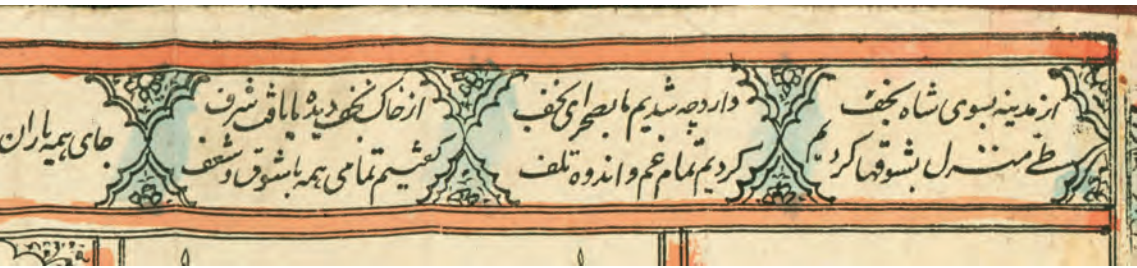 از مدینه بسوی شاه نجف
طے منزل بشوقها کردیم
وارد چه شدیم ما بصحرای نجف
کردیم تمام غم و اندوه تلف
از خاک نجف دیده ما یافت شرف
گفتیم تمامی همه با شوق و شعف
جای همه یاران